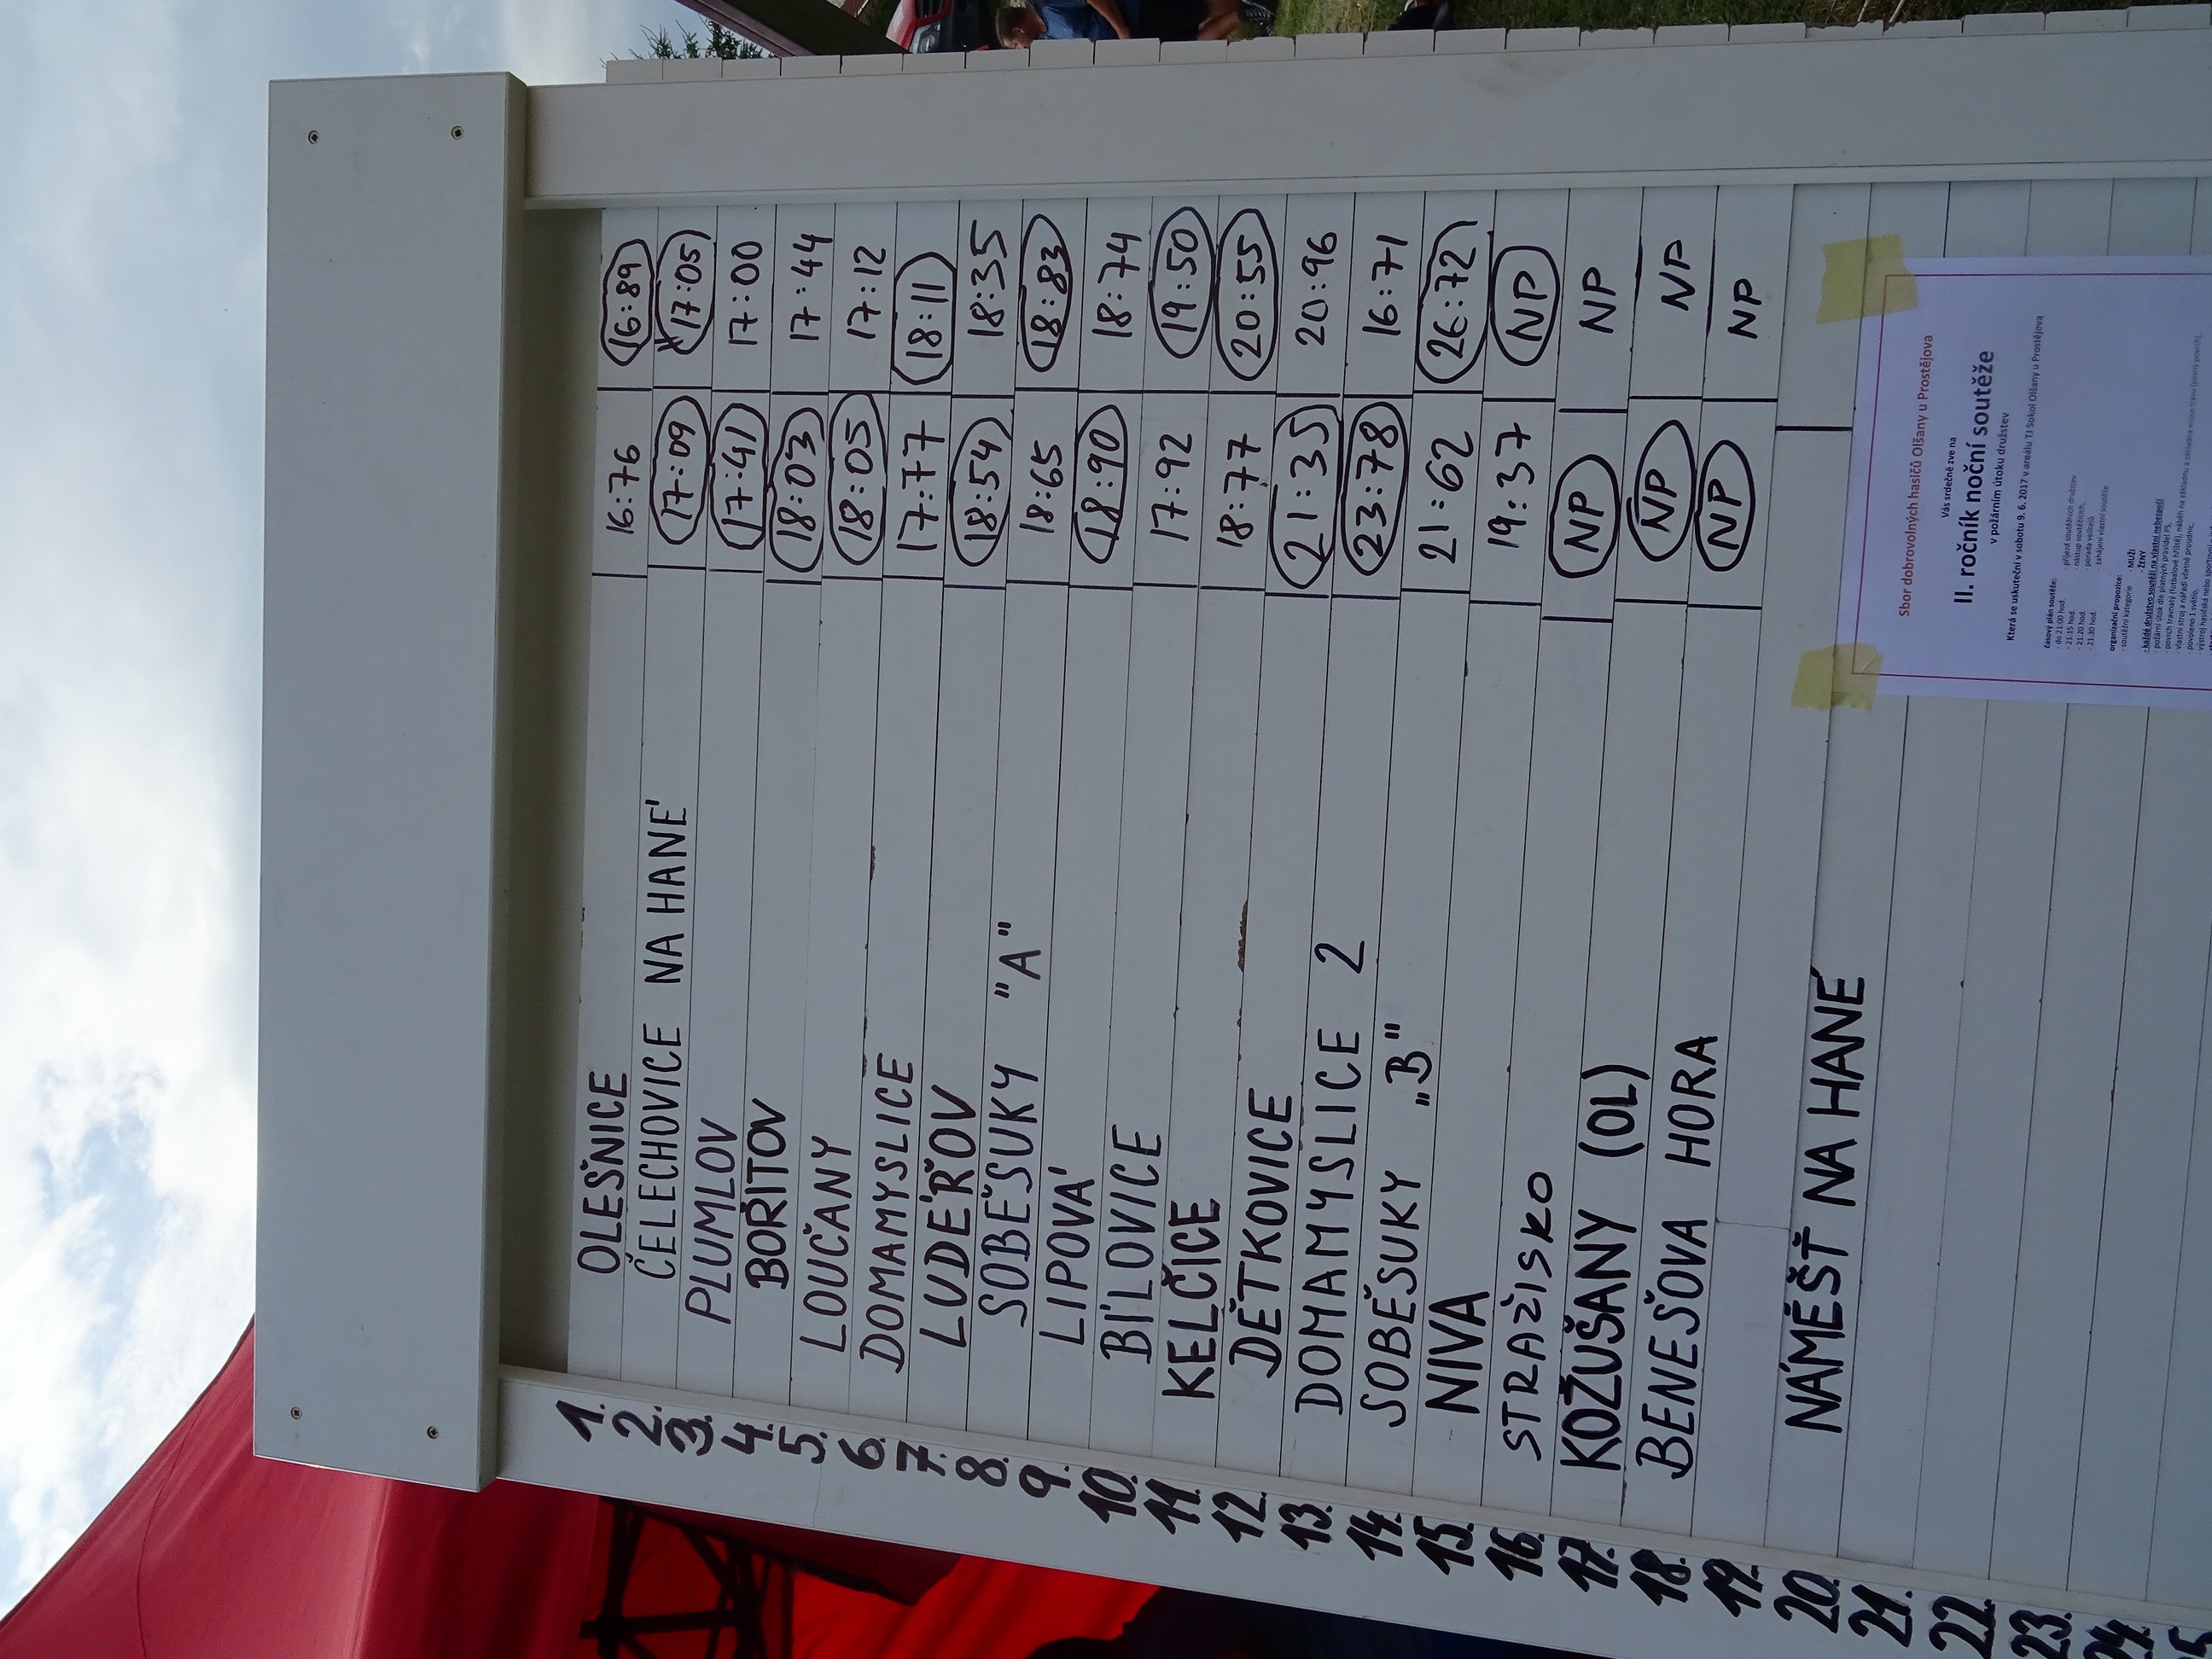 1. OLEŠNICE 16:76 16:89
2. ČELECHOVICE NA HANÉ 17:09 17:05
3. PLUMLOV 17:41 17:00
4. BOŘITOV 18:03 17:44
5. LOUČANY 18:05 17:12
6. DOMAMYSLICE 17:77 18:11
7. LUDÉŘOV 18:54 18:35
8. SOBĚSUKY "A" 18:65 18:83
9. LIPOVÁ 18:90 18:74
10. BÍLOVICE 17:92 19:50
11. KELČICE 18:77 20:55
12. DĚTKOVICE 21:35 20:96
13. DOMAMYSLICE 2 23:78 16:71
14. SOBĚSUKY "B" 21:62 26:72
15. NIVA 19:37 NP
16. STRAŽISKO NP NP
17. KOŽUŠANY (OL) NP NP
18. BENEŠOVA HORA NP NP
19.
20. NÁMĚŠŤ NA HANÉ
21.
22.
23.
24.
Sbor dobrovolných hasičů Olšany u Prostějova
Vás srdečně zve na
II. ročník noční soutěže
v požárním útoku družstev
Která se uskuteční v sobotu 9. 6. 2017 v areálu TJ Sokol Olšany u Prostějova
časový plán soutěže:
- do 21:00 hod. - příjezd soutěžních družstev
- 21:15 hod. - nástup soutěžících,
- 21:20 hod. - porada velitelů
- 21:30 hod. - zahájení vlastní soutěže
organizační propozice:
- soutěžní kategorie - MUŽI
- ŽENY
- každé družstvo soutěží na vlastní nebezpečí
- požární útok dle platných pravidel PS,
- povrch travnatý (fotbalové hřiště), náběh na základnu a základna mimo trávu (pevný povrch)
- vlastní stroj a nářadí včetně proudnic,
- povoleno 1 světlo,